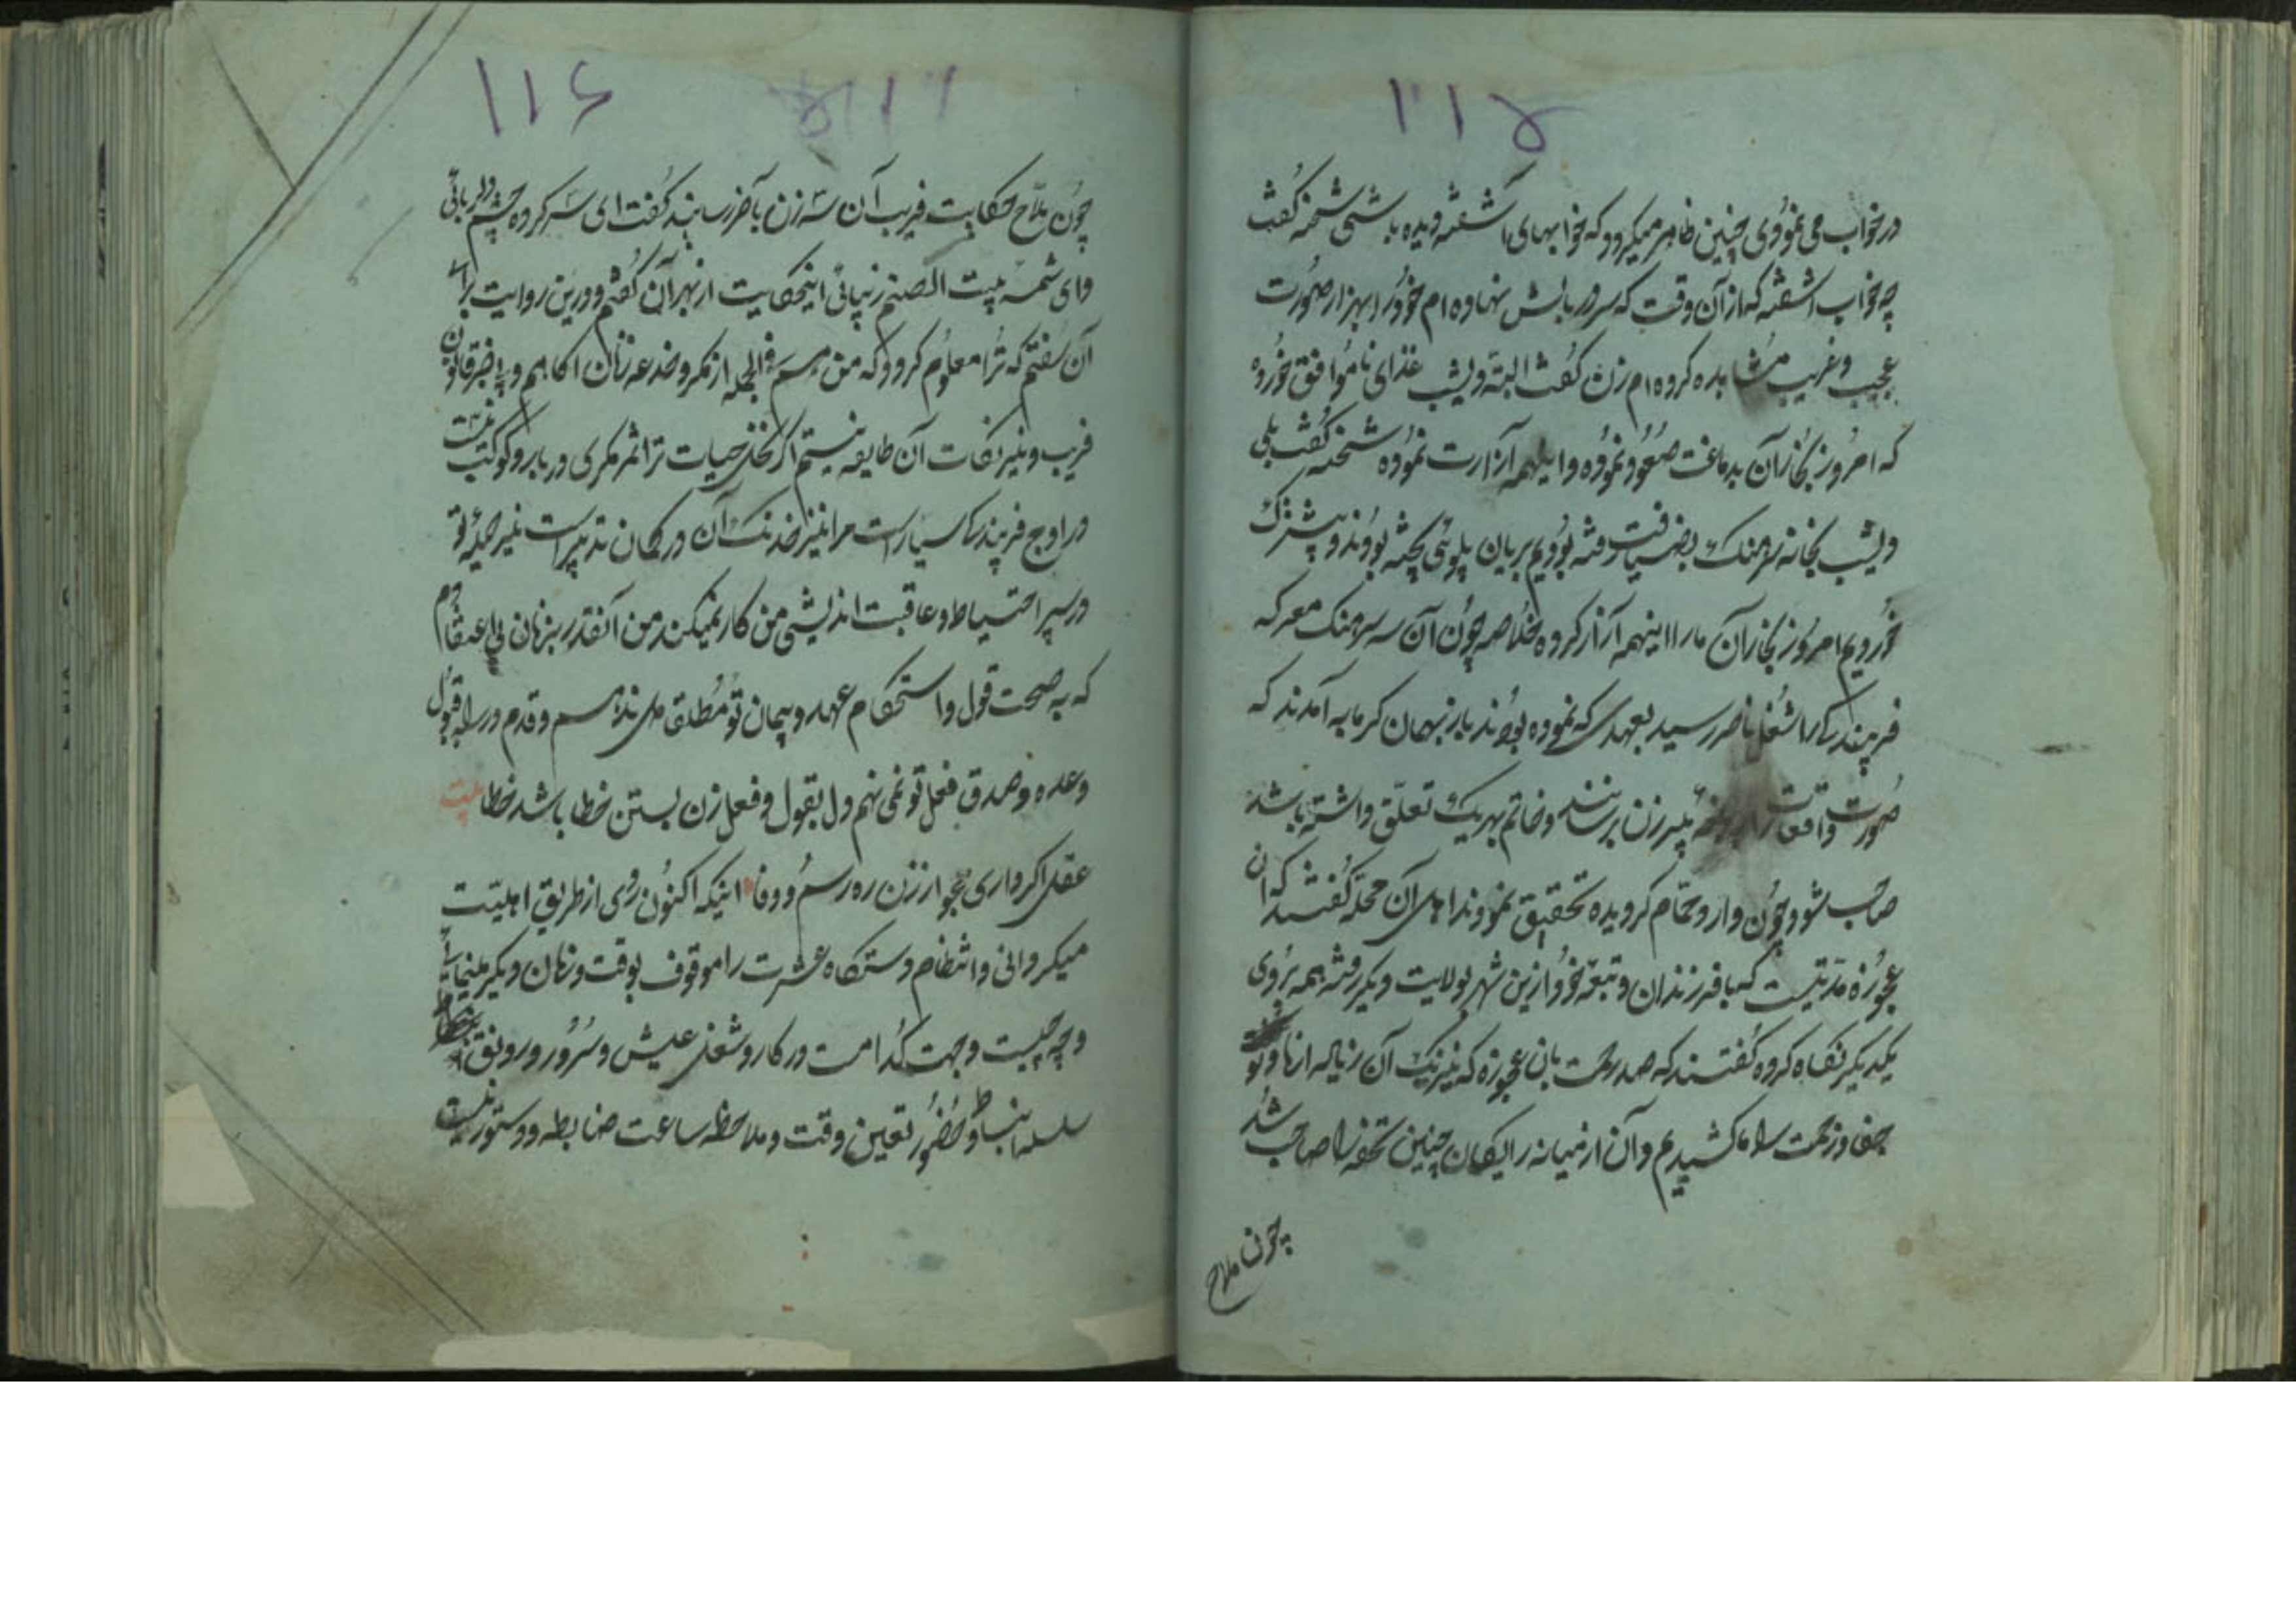 ۱۱۵
در خواب می نمودی چنین ظاهر میگردد که خوابهای آشفته دیده باشی شحنه گفت
چه خواب آشفته که از آن وقت که سر در بالش نهاده ام خود را بهزار صورت
عجیب و غریب مشاهده کرده ام زن گفت البته دیشب غذای ناموافق خورده
که امروز بخار آن بدماغت صعود نموده و اینهمه آزارت نموده شحنه گفت بلی
دیشب بخانه سرهنگ بضیافت رفته بودیم بریان پلوئی پخته بودند و پیشترک
خوردیم امروز بخار آن مارا اینهمه آزار کرده خلاصه چون آن سه سرهنگ معرکه
فریبندگی را شغل باخر رسید بعهدی که نموده بودند باز بهمان گرمابه آمدند که
صورت واقعات را به پیر زن برسانند و خاتم بهر یک تعلق داشته باشد
صاحب شود چون وارد حمام گردیده تحقیق نمودند اهل آن محله گفتند که آن
عجوزه مدتیست که با فرزندان و تبعه خود ازین شهر بولایت دیگر رفته همه بروی
یکدیگر نگاه کرده گفتند که صد رحمت بان عجوزه که نیرنگ آن زیاله از ما و تو
جفا و زحمت را ما کشیدیم و آن از میانه رایگان چنین تحفه را صاحب شد
چون ملاح
۱۱۶
چون ملاح حکایت فریب آن سه زن بآخر رسانید گفت ای سرکرده چشم دلربائی
و ای شمسه بیت الصنم زیبائی اینحکایت از بهر آن گفتم و درین روایت برای
آن سفتم که ترا معلوم گردد که من هم فی الجمله از مکر و خدعه زنان آگاهم و بیخبر قانون
فریب و نیرنجات آن طایفه نیستم اگر نخل حیات ترا ثمر مکری در بار و کوکب نیت
در اوج فریبندگی سیار است مرا نیز خدنگ آن در کمان تدبیر است تیر حیله تو
در سپر احتیاط و عاقبت اندیشی من کار نمیکند من آنقدر بزنان بی اعتقادم
که به صحت قول و استحکام عهد و پیمان تو مطلقا دل ندهم و قدم در راه قبول
وعده و صدق فعل تو نمی نهم دل بقول و فعل زن بستن خطا باشد خطا بیت
عقل اگر داری مجو از زن ره رسم و وفا اینکه اکنون روی از طریق اهلیت
میگردانی و انتظام دستگاه عشرت را موقوف بوقت و زمان دیگر مینمائی
وجه چیست و جهت کدامست در کار و شغل عیش و سرور و رونق
سلسله انبساط و حضور تعین وقت و ملاحظه ساعت ضابطه و دستور نیست